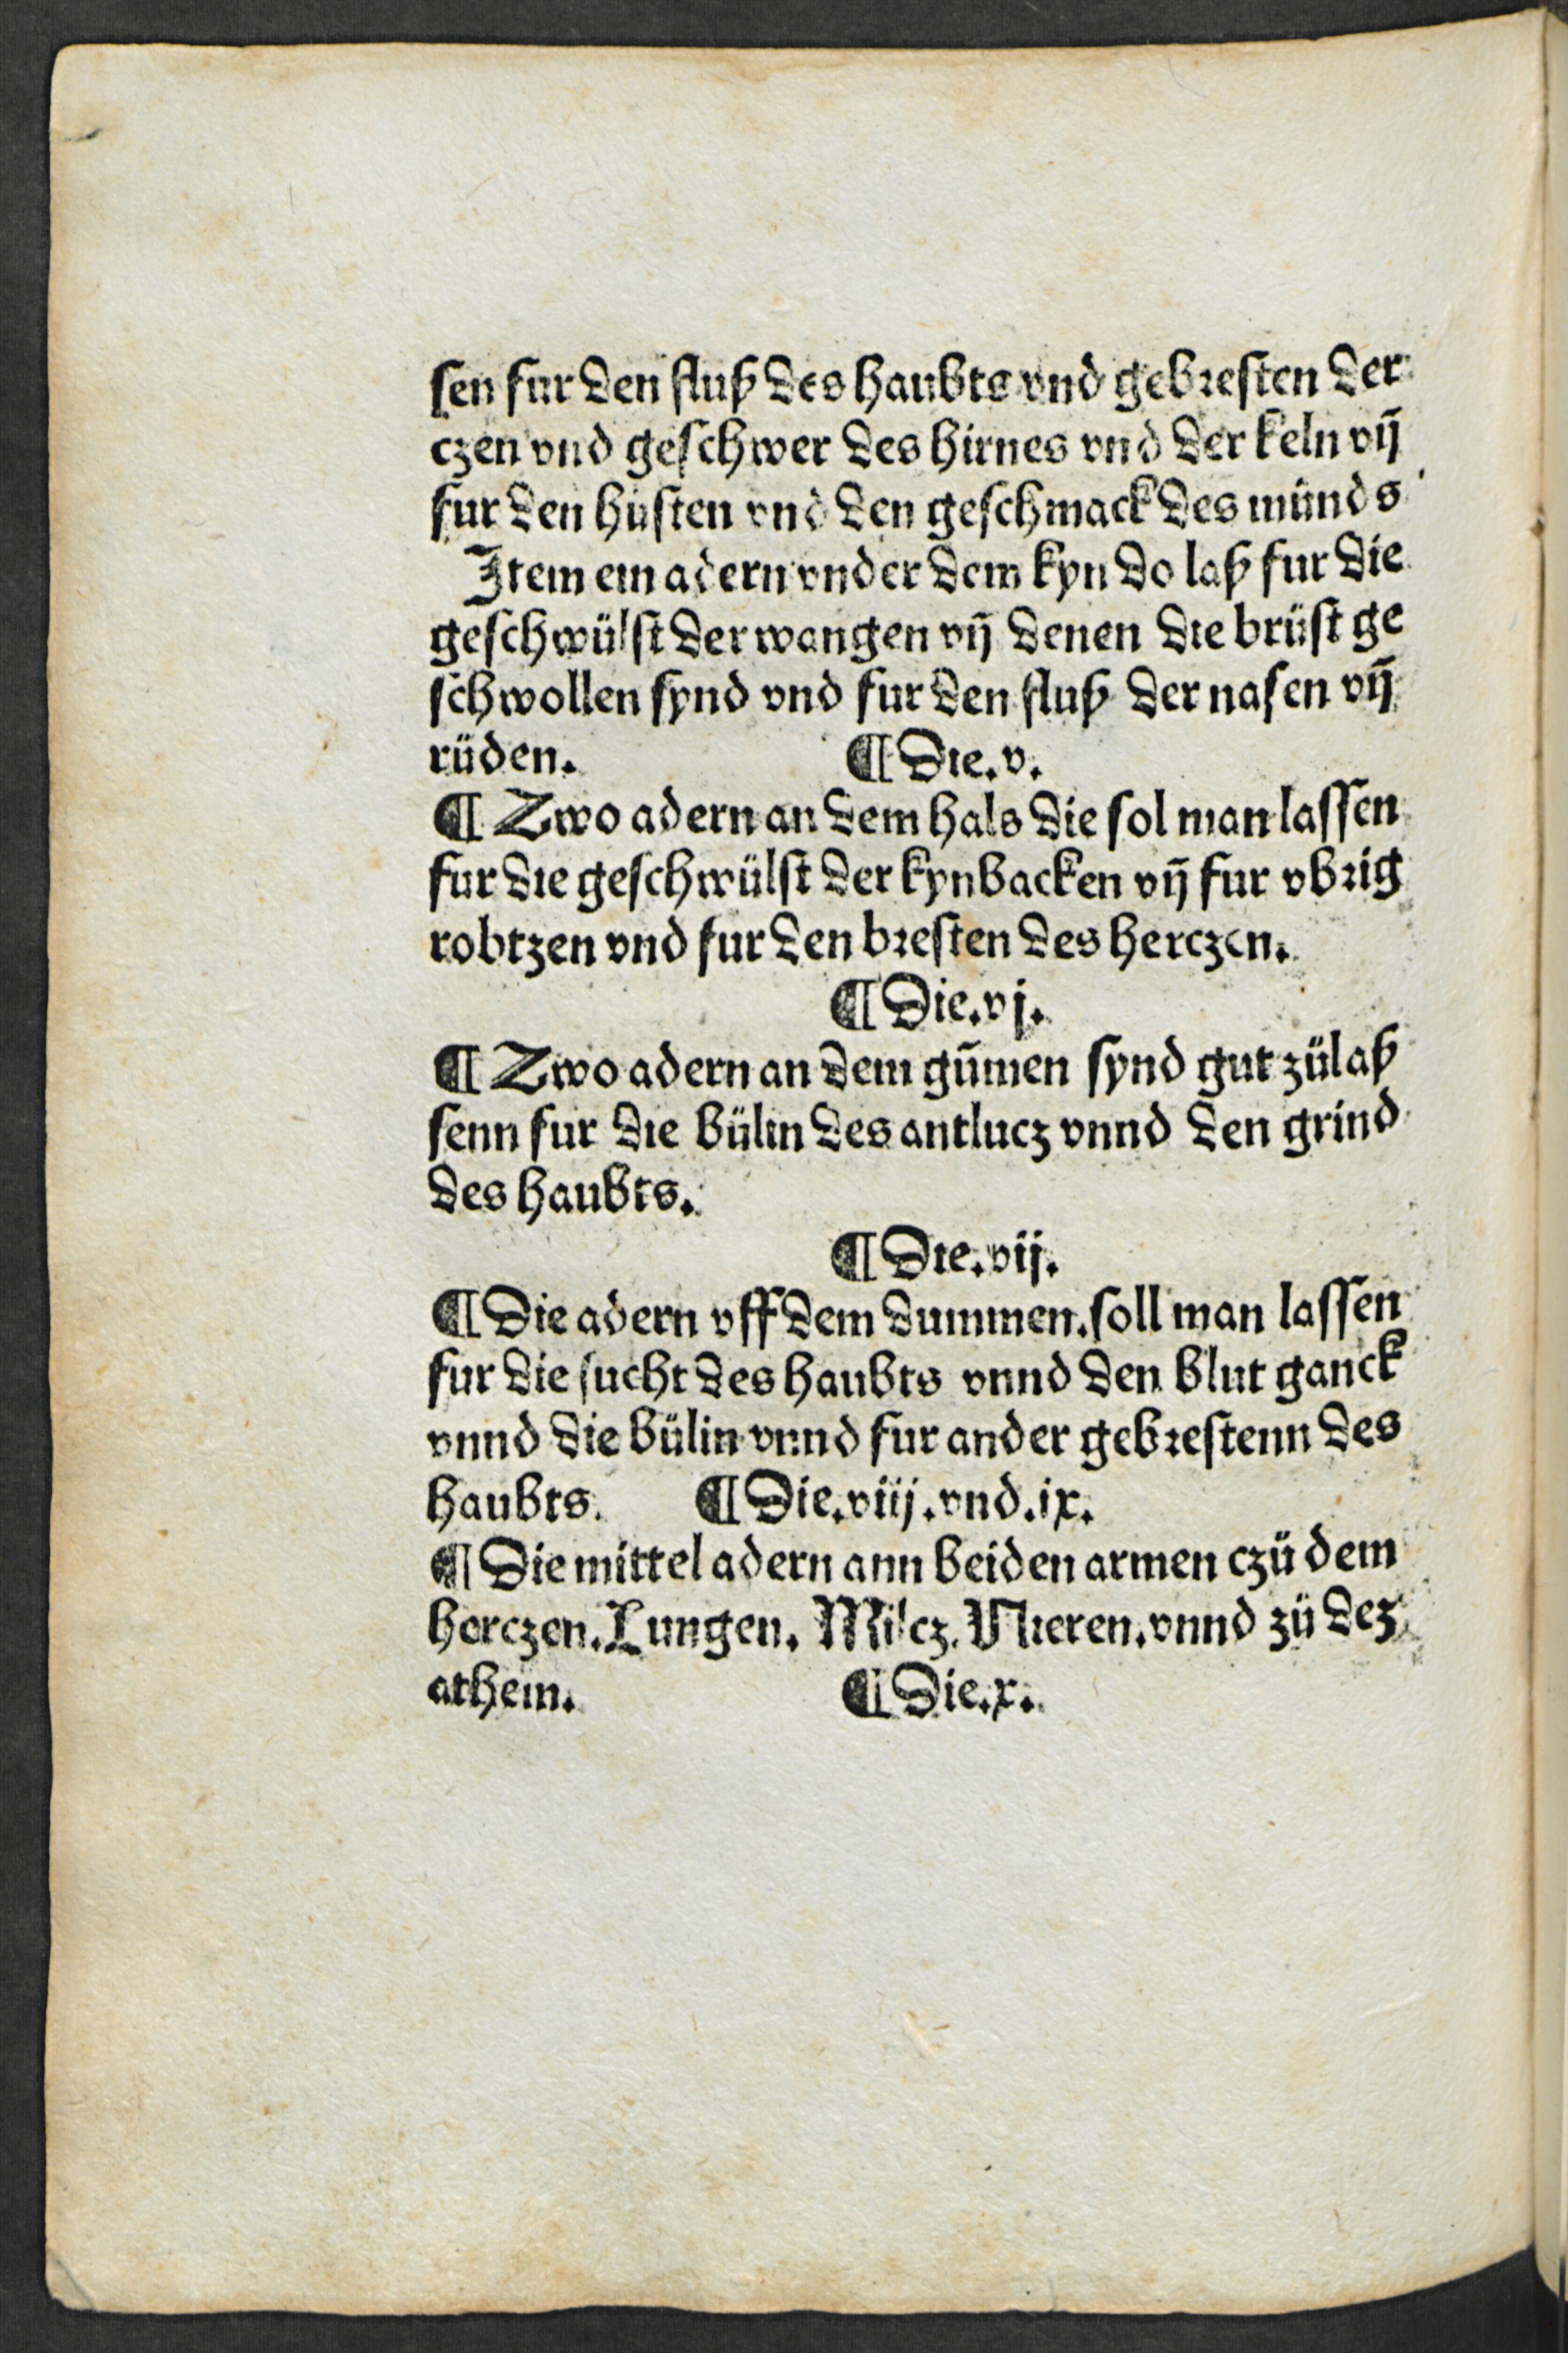 sen fur den fluß des haubts vnd gebresten der
czen vnd geschwer des hirnes vnd der keln vn̄
fur den hüsten vnd den geschmack des münds
Item ein adern vnder dem kyn do laß fur die
geschwülst der wangen vn̄ denen die brüst ge
schwollen synd vnd fur den fluß der nasen vn̄
rüden. ¶ Die.v.
¶ Zwo adern an dem hals die sol man lassen
fur die geschwülst der kynbacken vn̄ fur vbrig
robtzen vnd fur den bresten des herczen.
¶ Die.vj.
¶ Zwo adern an dem gūmen synd gut zülaß
senn fur die bülin des antlucz vnnd den grind
des haubts.
¶ Die.vij.
¶ Die adern vff dem dummen.soll man lassen
fur die sucht des haubts vnnd den blut ganck
vnnd die bülin vnnd fur ander gebrestenn des
haubts. ¶ Die.viij.vnd.ix.
¶ Die mittel adern ann beiden armen czü dem
herczen.Lungen. Milcz. Nieren.vnnd zü dez
athem. ¶ Die.x.